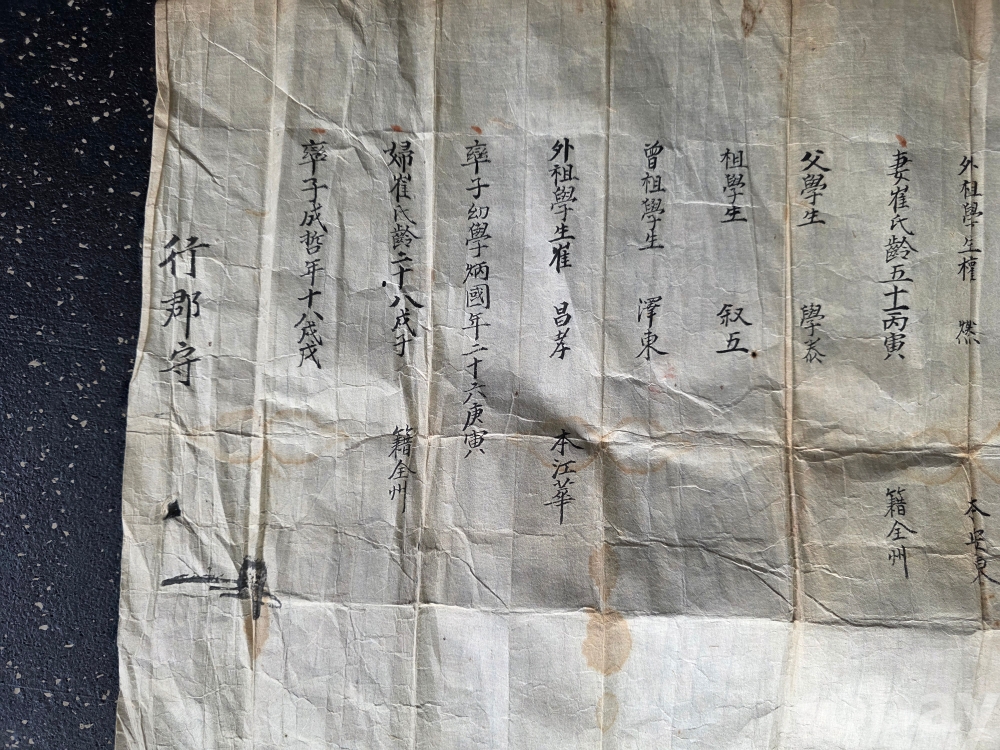 外祖學生 燃 本
妻崔氏齡五十丙寅 籍全州
父學生 學泰
祖學生 叙五
曾祖學生 澤東
外祖學生崔 昌孝 本江華
率子幼學炳國年二十六庚寅
婦崔氏齡二十八戊子 籍全州
率子成哲年十八戊戌
行郡守